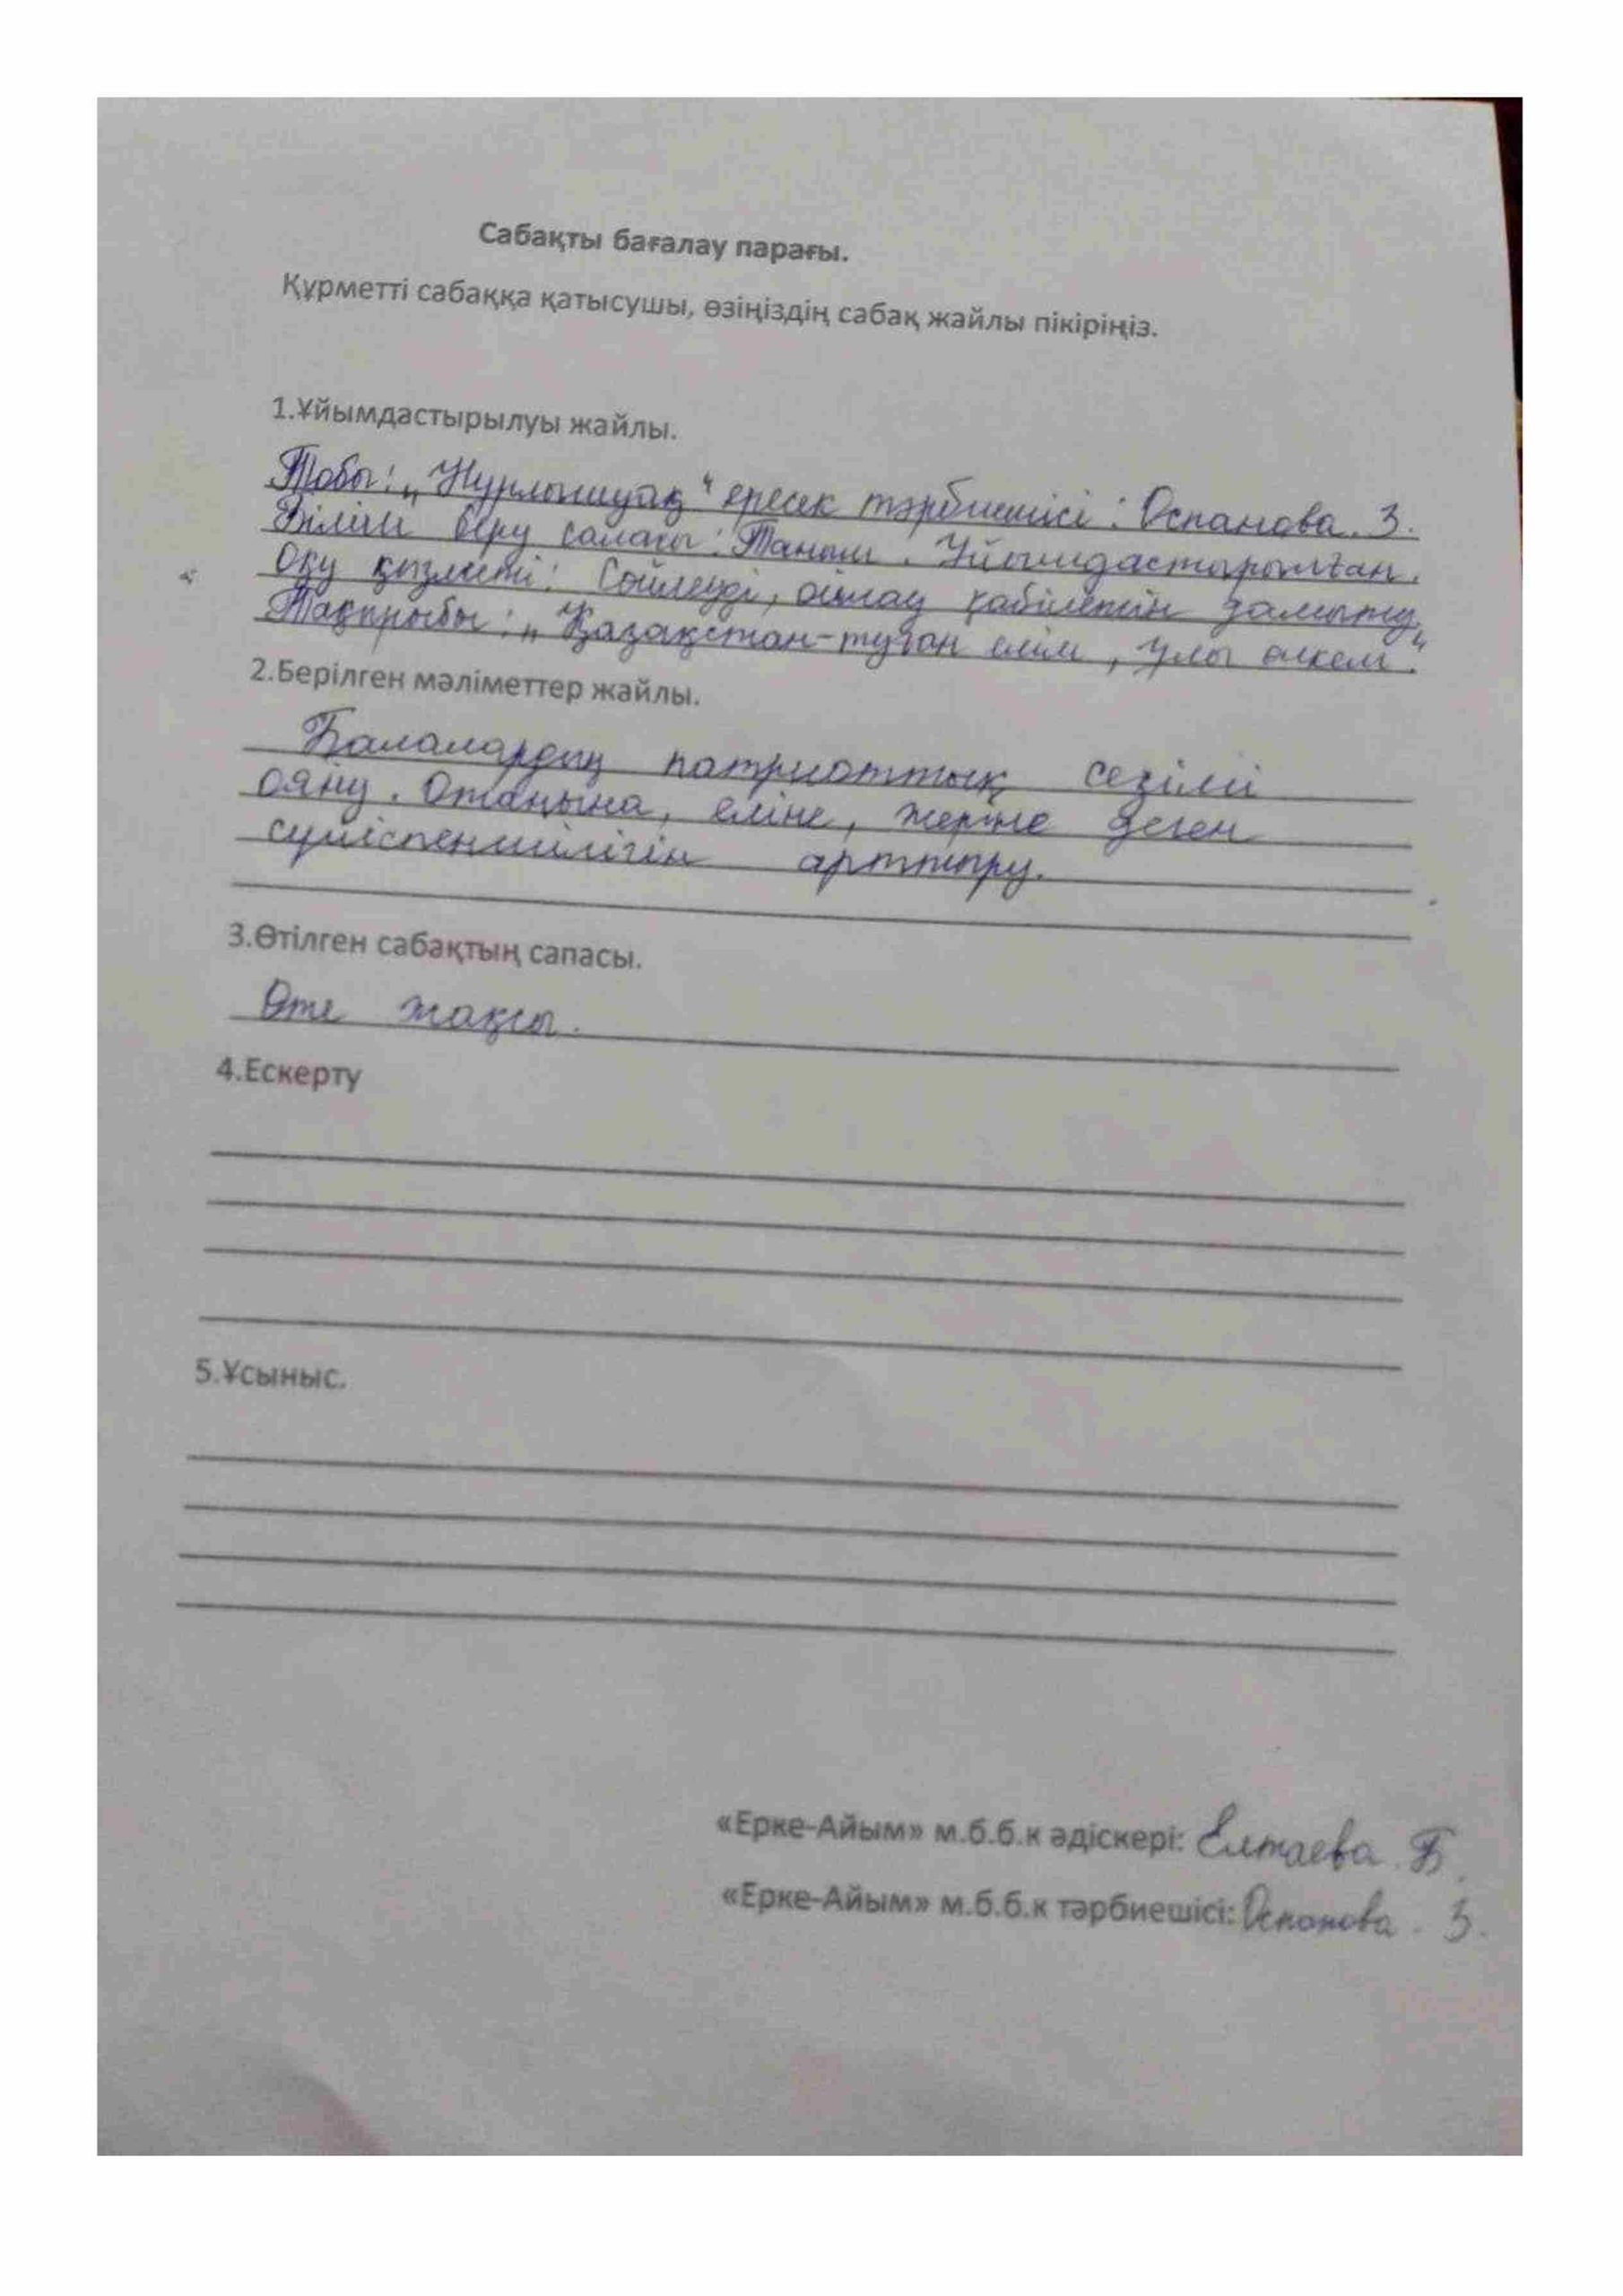 Сабақты бағалау парағы.
Құрметті сабаққа қатысушы, өзіңіздің сабақ жайлы пікіріңіз.
1.Ұйымдастырылуы жайлы.
Тобы: „Нұрлышуақ“ ересек тәрбиешісі: Оспанова. З.
Білім беру саласы: Таным. Ұйымдастырылған.
Оқу қызметі: Сөйлеуді, ойлау қабілетін дамыту.
Тақырыбы: „Қазақстан-туған елім, ұлы өлкем“.
2.Берілген мәліметтер жайлы.
Балалардың патриоттық сезімі
ояну. Отанына, еліне, жеріне деген
сүйіспеншілігін арттыру.
3.Өтілген сабақтың сапасы.
Өте жақсы.
4.Ескерту
5.Ұсыныс.
«Ерке-Айым» м.б.б.к әдіскері: Елтаева. Б.
«Ерке-Айым» м.б.б.к тәрбиешісі: Оспанова. З.